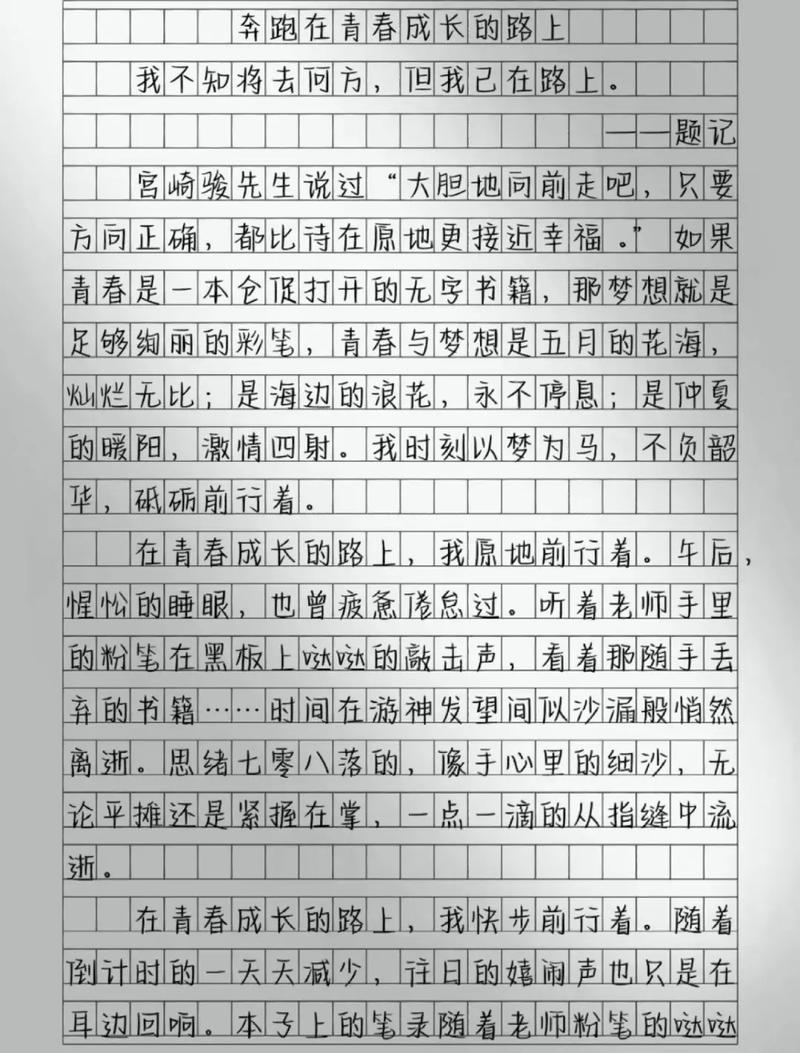 奔跑在青春成长的路上
我不知将去何方，但我已在路上。
——题记
宫崎骏先生说过“大胆地向前走吧，只要
方向正确，都比待在原地更接近幸福。”如果
青春是一本仓促打开的无字书籍，那梦想就是
足够绚丽的彩笔，青春与梦想是五月的花海，
灿烂无比；是海边的浪花，永不停息；是仲夏
的暖阳，激情四射。我时刻以梦为马，不负韶
华，砥砺前行着。
在青春成长的路上，我原地前行着。午后，
惺忪的睡眼，也曾疲惫倦怠过。听着老师手里
的粉笔在黑板上哒哒的敲击声，看着那随手丢
弃的书籍……时间在游神发望间似沙漏般悄然
离逝。思绪七零八落的，像手心里的细沙，无
论平摊还是紧握在掌，一点一滴的从指缝中流
逝。
在青春成长的路上，我快步前行着。随着
倒计时的一天天减少，往日的嬉闹声也只是在
耳边回响。本子上的笔录随着老师粉笔的哒哒